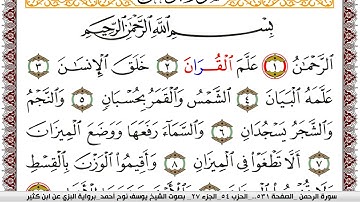 بِسْمِ اللَّهِ الرَّحْمَٰنِ الرَّحِيمِ
الرَّحْمَٰنُ ١ عَلَّمَ الْقُرَانَ ٢ خَلَقَ الْإِنسَٰنَ ٣
عَلَّمَهُ الْبَيَانَ ٤ الشَّمْسُ وَالْقَمَرُ بِحُسْبَانٍ ٥ وَالنَّجْمُ
وَالشَّجَرُ يَسْجُدَانِ ٦ وَالسَّمَاءَ رَفَعَهَا وَوَضَعَ الْمِيزَانَ
٧ أَلَّا تَطْغَوْا فِي الْمِيزَانِ ٨ وَأَقِيمُوا الْوَزْنَ بِالْقِسْطِ
سورة الرحمن _ الصفحة ٥٣١ _ الحزب ٥٤ _ الجزء ٢٧ _ بصوت الشيخ يوسف نوح أحمد _ برواية البزي عن ابن كثير